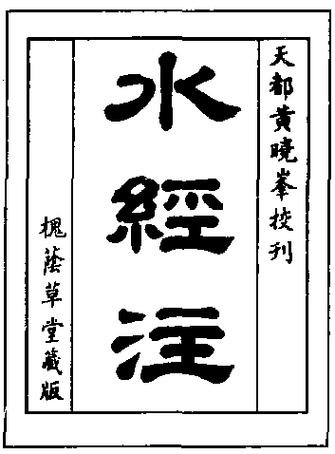 天都黃曉峯挍刋
水經注
槐蔭草堂藏版